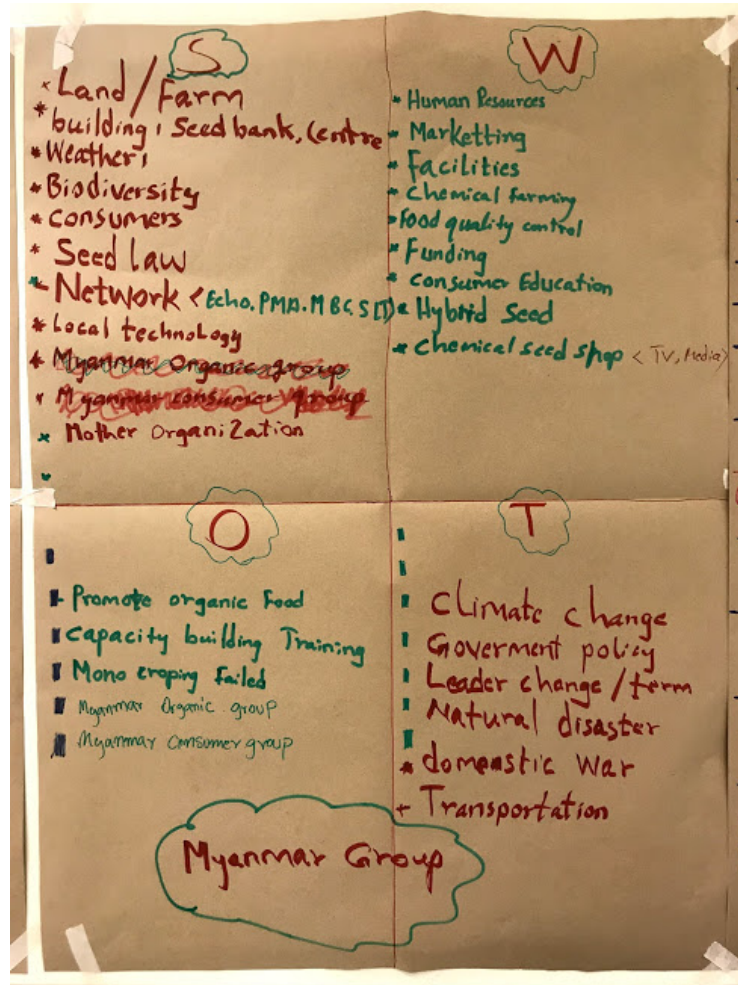 S
Land/Farm
building, Seed bank, Centre
Weather,
Biodiversity
consumers
Seed law
Network < Echo. PMA. MBC. S
Local technology
Myanmar Organic group
Myanmar consumer group
Mother OrganiZation
W
Human Resources
Marketting
Facilities
Chemical farming
Food quality control
Funding
consumer Education
Hybrid Seed
Chemical seed shop < TV, Media>
O
Promote organic Food
capacity building Training
Mono croping Failed
Myanmar Organic group
Myanmar Consumer group
T
Climate change
Goverment policy
Leader change/term
Natural disaster
domeastic War
Transportation
Myanmar Group